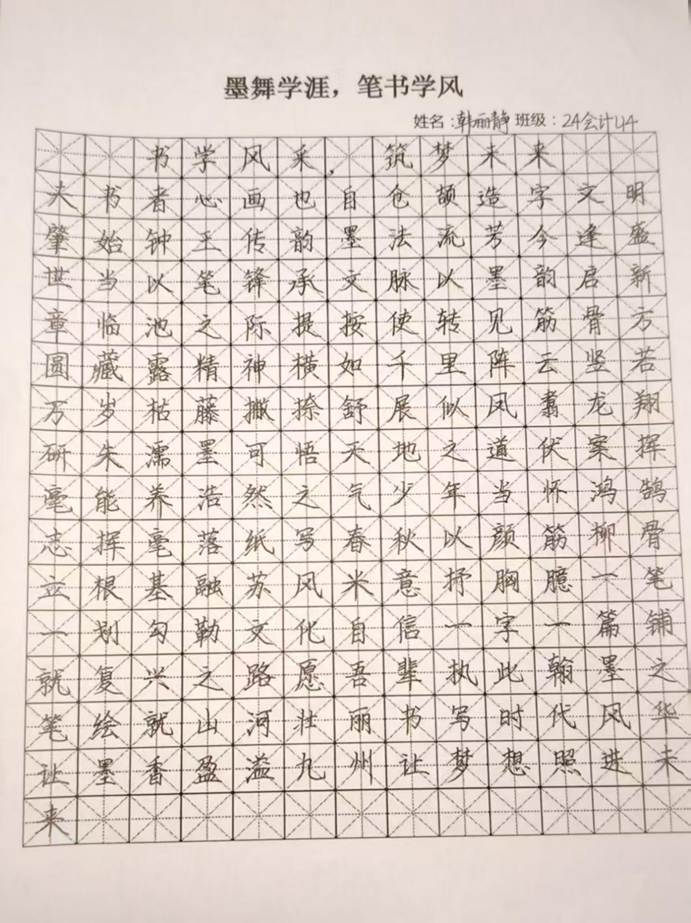 墨舞学涯，笔书学风
姓名：韩丽静 班级：24会计U4
书学风采，筑梦未来
夫书者心画也自仓颉造字文明
肇始钟王传韵墨法流芳今逢盛
世当以笔锋承文脉以墨韵启新
章临池之际提按使转见筋骨方
圆藏露精神横如千里阵云竖若
万岁枯藤撇捺舒展似凤翥龙翔
研朱濡墨可悟天地之道伏案挥
毫能养浩然之气少年当怀鸿鹄
志挥毫落纸写春秋以颜筋柳骨
立根基融苏风米意抒胸臆一笔
一划勾勒文化自信一字一篇铺
就复兴之路愿吾辈执此翰墨之
笔绘就山河壮丽书写时代风华
让墨香盈溢九州让梦想照进未
来